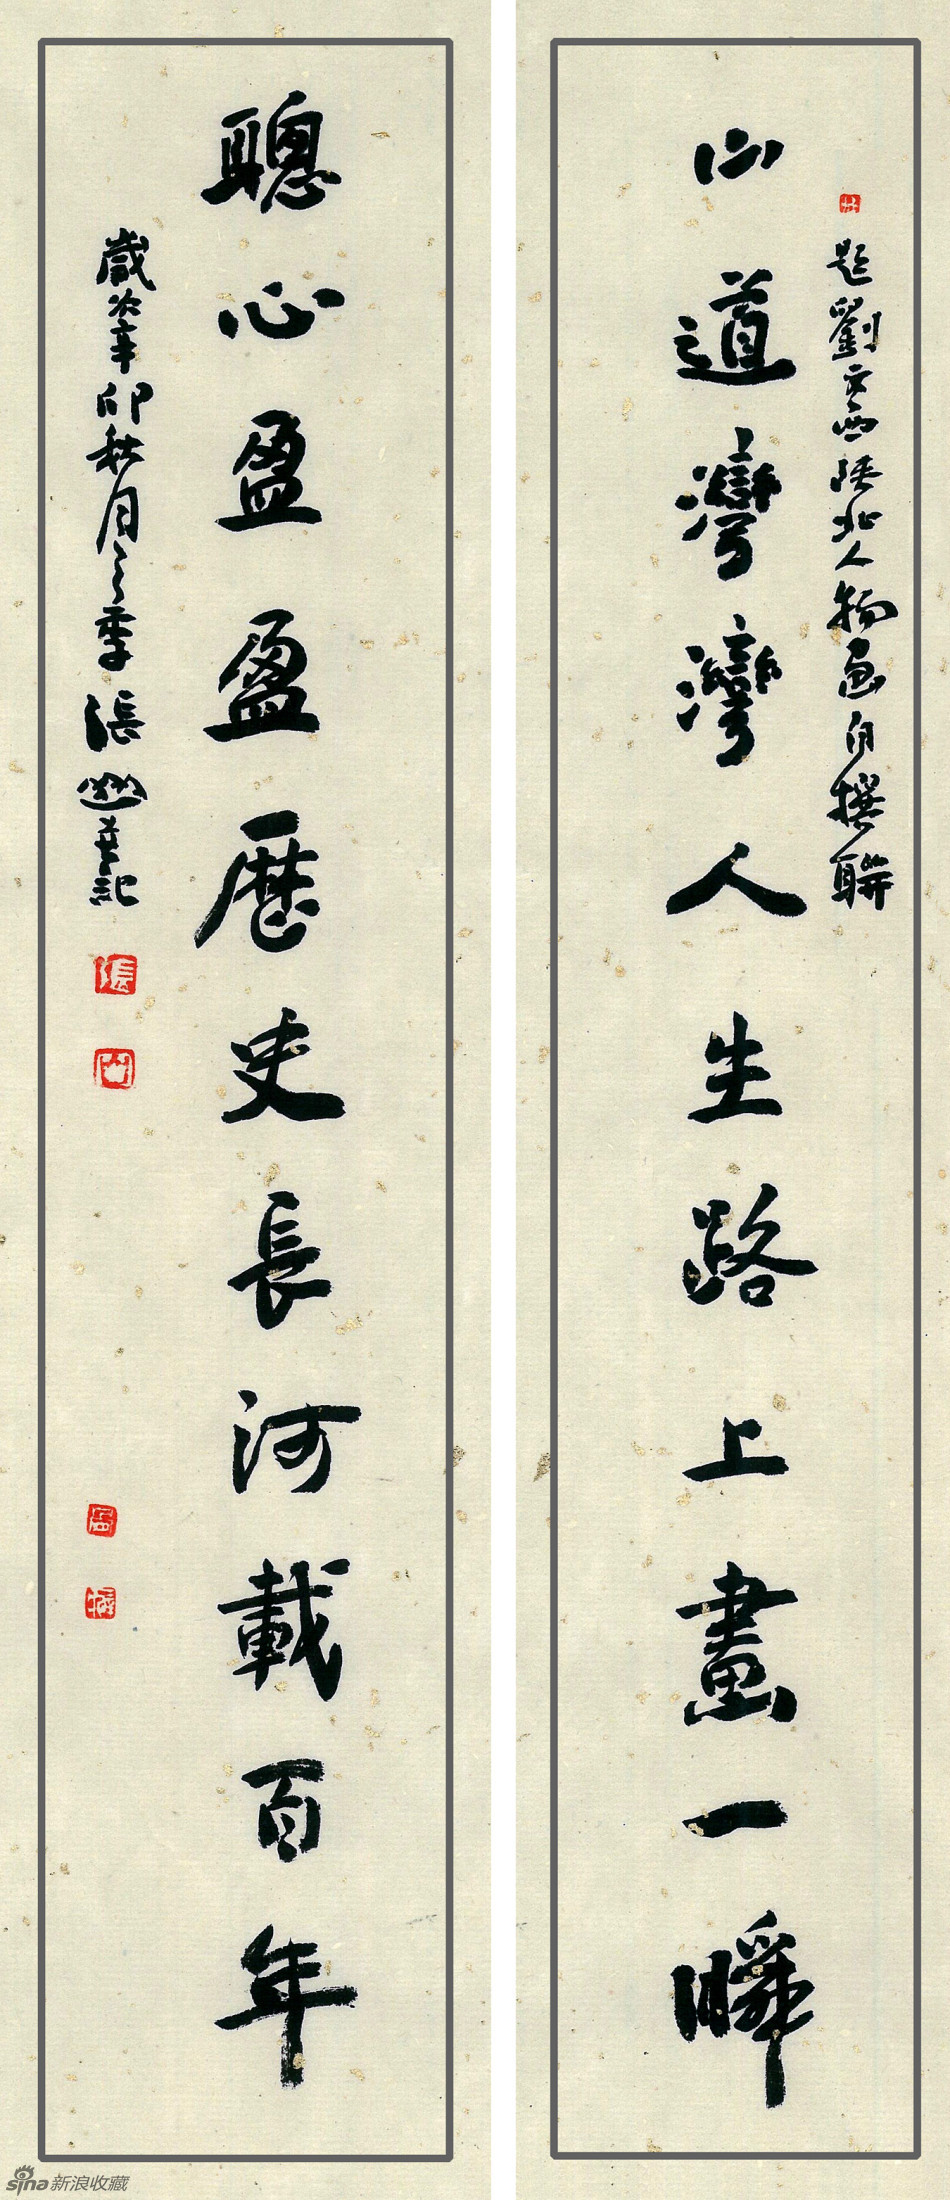 題劉文西陝北人物畫自撰聯
山道灣灣人生路上畫一瞬
聰心盈盈歷史長河載百年
歲次辛卯秋月之季張
記
張
山
sina新浪收藏